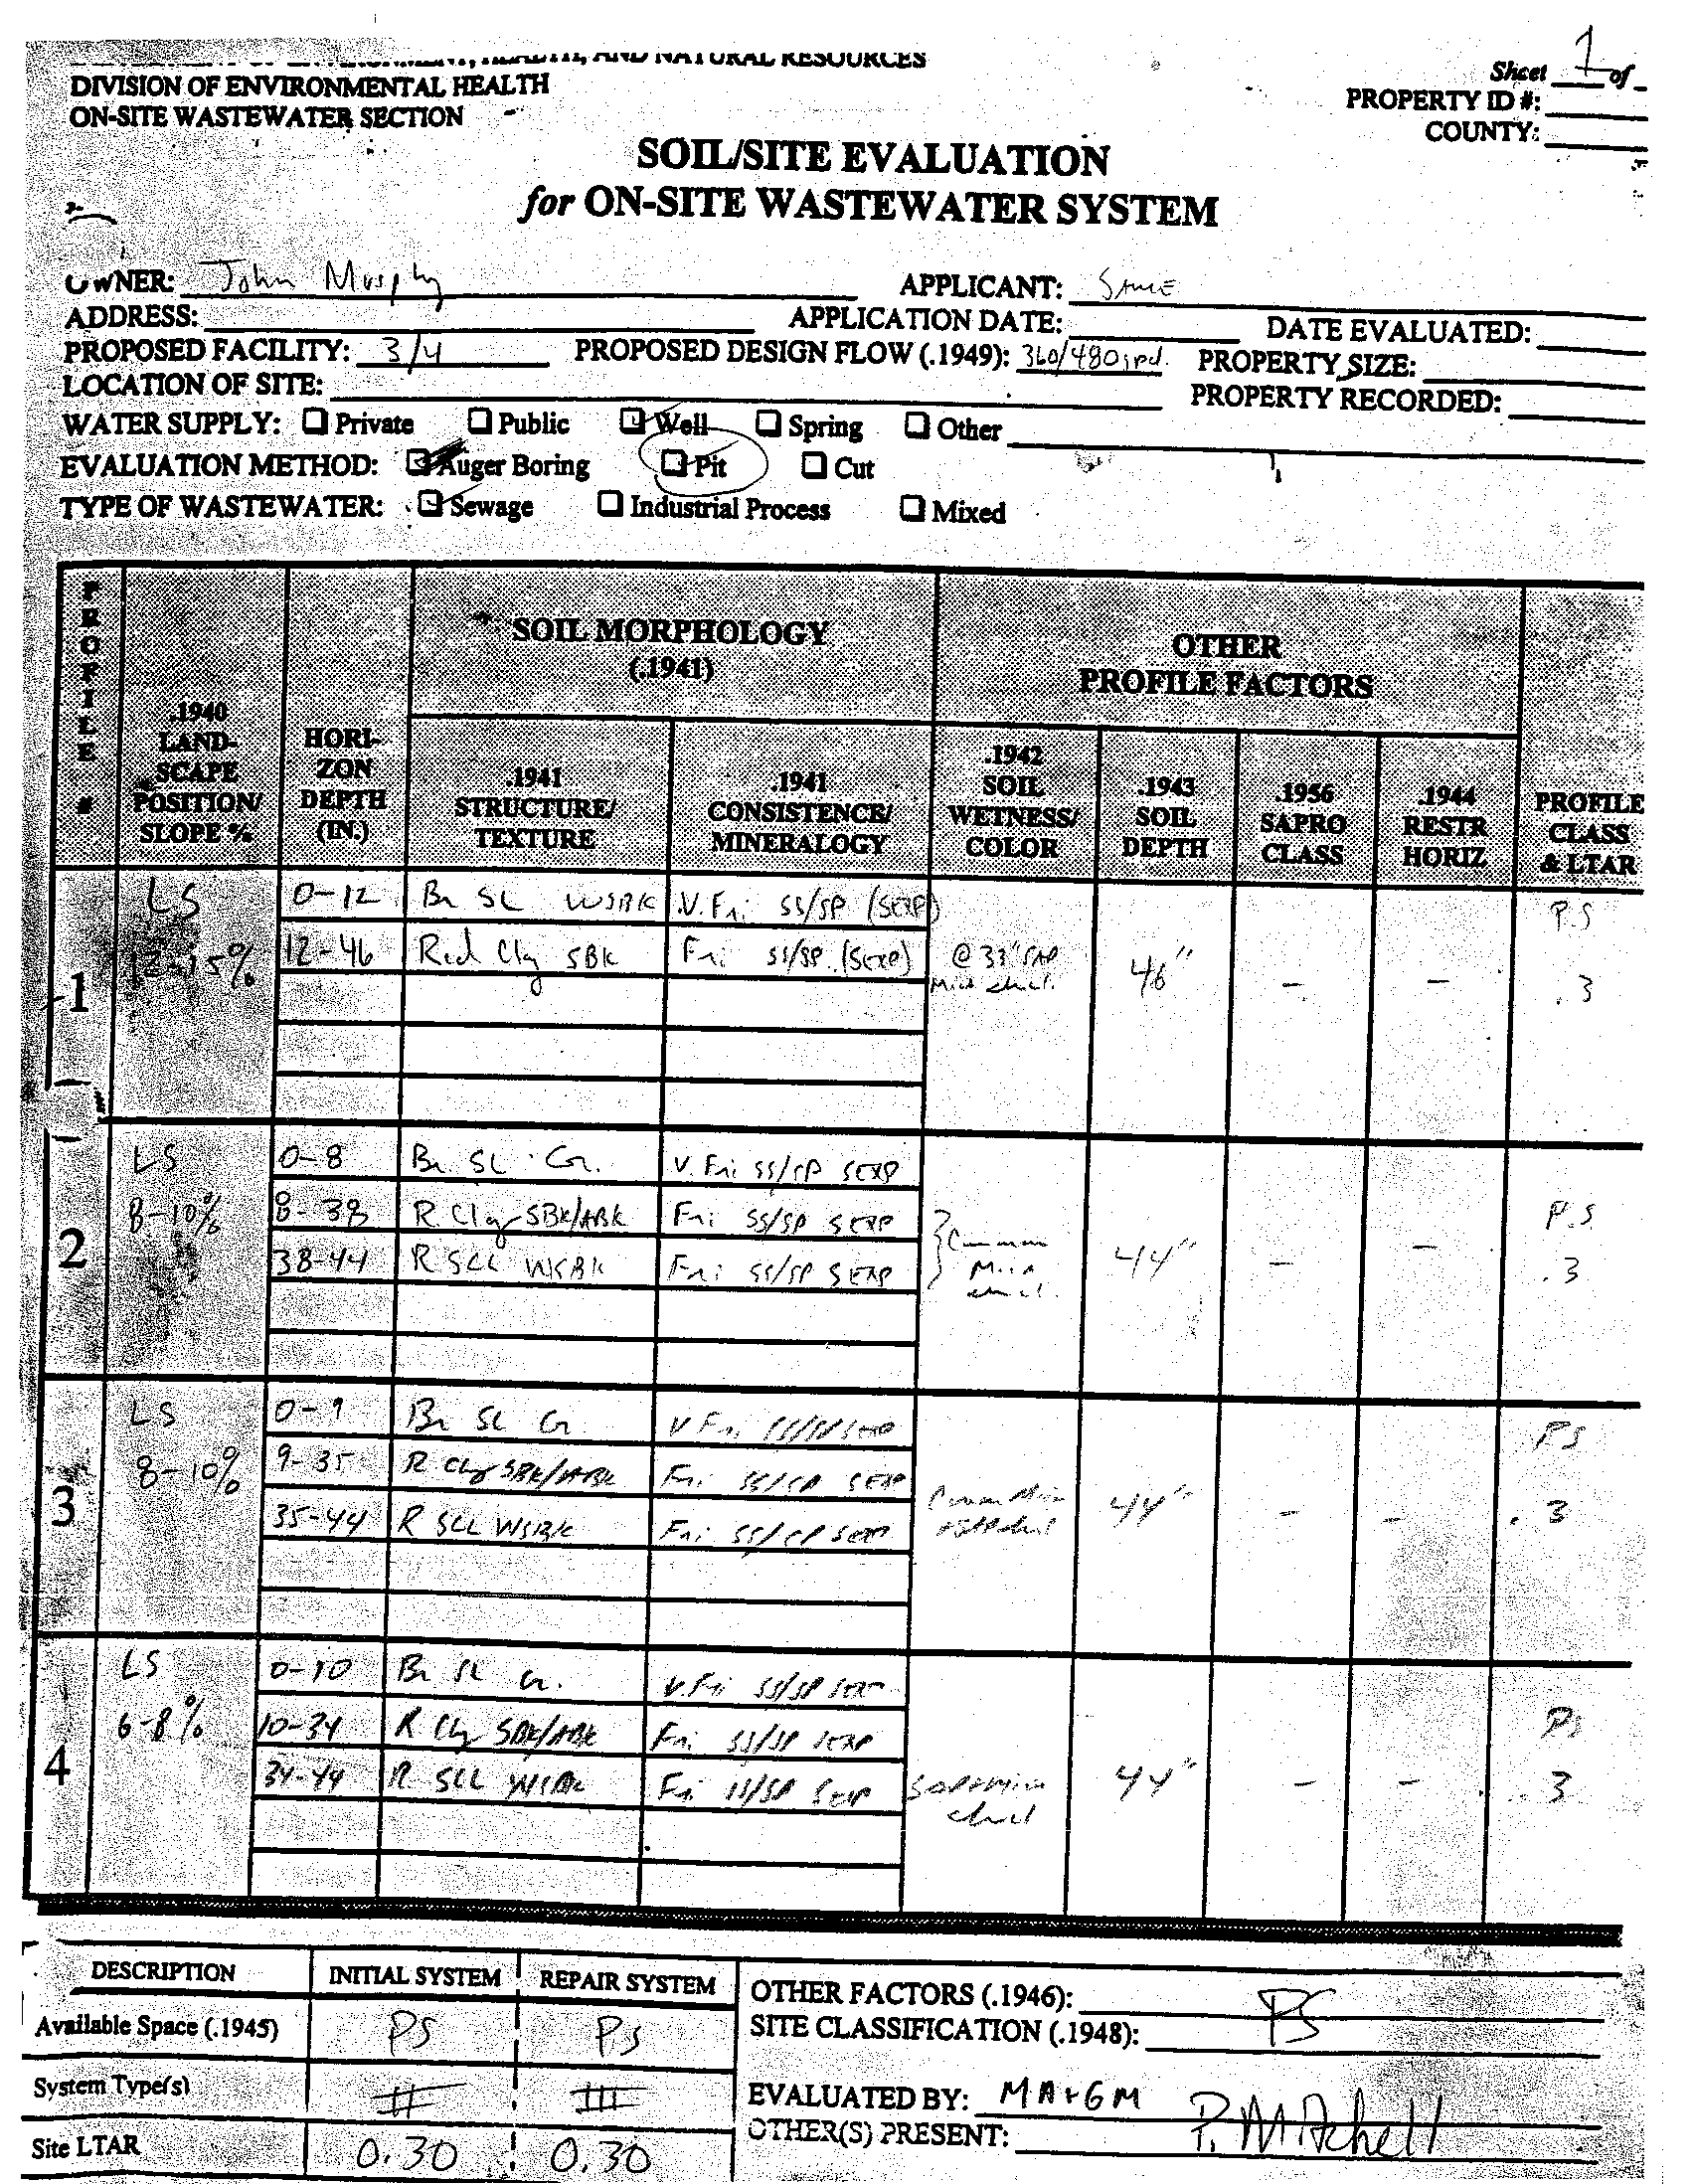 AND NATURAL RESOURCES
DIVISION OF ENVIRONMENTAL HEALTH
ON-SITE WASTEWATER SECTION
Sheet 1 of
PROPERTY ID #:
COUNTY:
SOIL/SITE EVALUATION
for ON-SITE WASTEWATER SYSTEM
OWNER: John Murphy APPLICANT: SAME
ADDRESS: APPLICATION DATE: DATE EVALUATED:
PROPOSED FACILITY: 3/4 PROPOSED DESIGN FLOW (.1949): 360/480 gpd. PROPERTY SIZE:
LOCATION OF SITE: PROPERTY RECORDED:
WATER SUPPLY: Private Public Well Spring Other
EVALUATION METHOD: Auger Boring Pit Cut
TYPE OF WASTEWATER: Sewage Industrial Process Mixed
PROFILE #
.1940 LAND-SCAPE POSITION/ SLOPE %
HORI-ZON DEPTH (IN.)
SOIL MORPHOLOGY (.1941)
.1941 STRUCTURE/ TEXTURE
.1941 CONSISTENCE/ MINERALOGY
OTHER PROFILE FACTORS
.1942 SOIL WETNESS/ COLOR
.1943 SOIL DEPTH
.1956 SAPRO CLASS
.1944 RESTR HORIZ
PROFILE CLASS & LTAR
1 LS 12-15%
0-12 Br SL WSBK V. Fri SS/SP (SEXP)
12-46 Red Cly SBK Fri SS/SP (SEXP) @ 33" 46" - - P.S .3
2 LS 8-10%
0-8 Br SL Gr. V. Fri SS/SP SEXP
8-38 R Cly SBK/ABK Fri SS/SP SEXP
38-44 R SCL WSBK Fri SS/SP SEXP Common 44" - - P.S .3
3 LS 8-10%
0-9 Br SL Gr V Fri SS/SP SEXP
9-35 R Cly SBK/ABK Fri SS/SP SEXP
35-44 R SCL WSBK Fri SS/SP SEXP 44" - - PS .3
4 LS 6-8%
0-10 Br SL Gr. V. Fri SS/SP SEXP
10-34 R Cly SBK/ABK Fri SS/SP SEXP
34-44 R SCL WSBK Fri SS/SP SEXP 44" - - PS .3
DESCRIPTION INITIAL SYSTEM REPAIR SYSTEM
Available Space (.1945) PS PS
System Type(s) II III
Site LTAR 0.30 0.30
OTHER FACTORS (.1946):
SITE CLASSIFICATION (.1948): PS
EVALUATED BY: MA+GM P. Mitchell
OTHER(S) PRESENT: